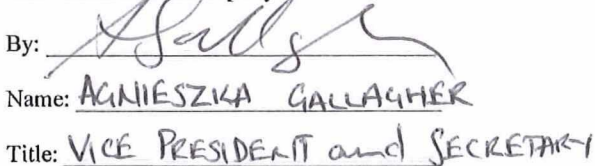 By:
Name: AGNIESZKA GALLAGHER
Title: VICE PRESIDENT and SECRETARY